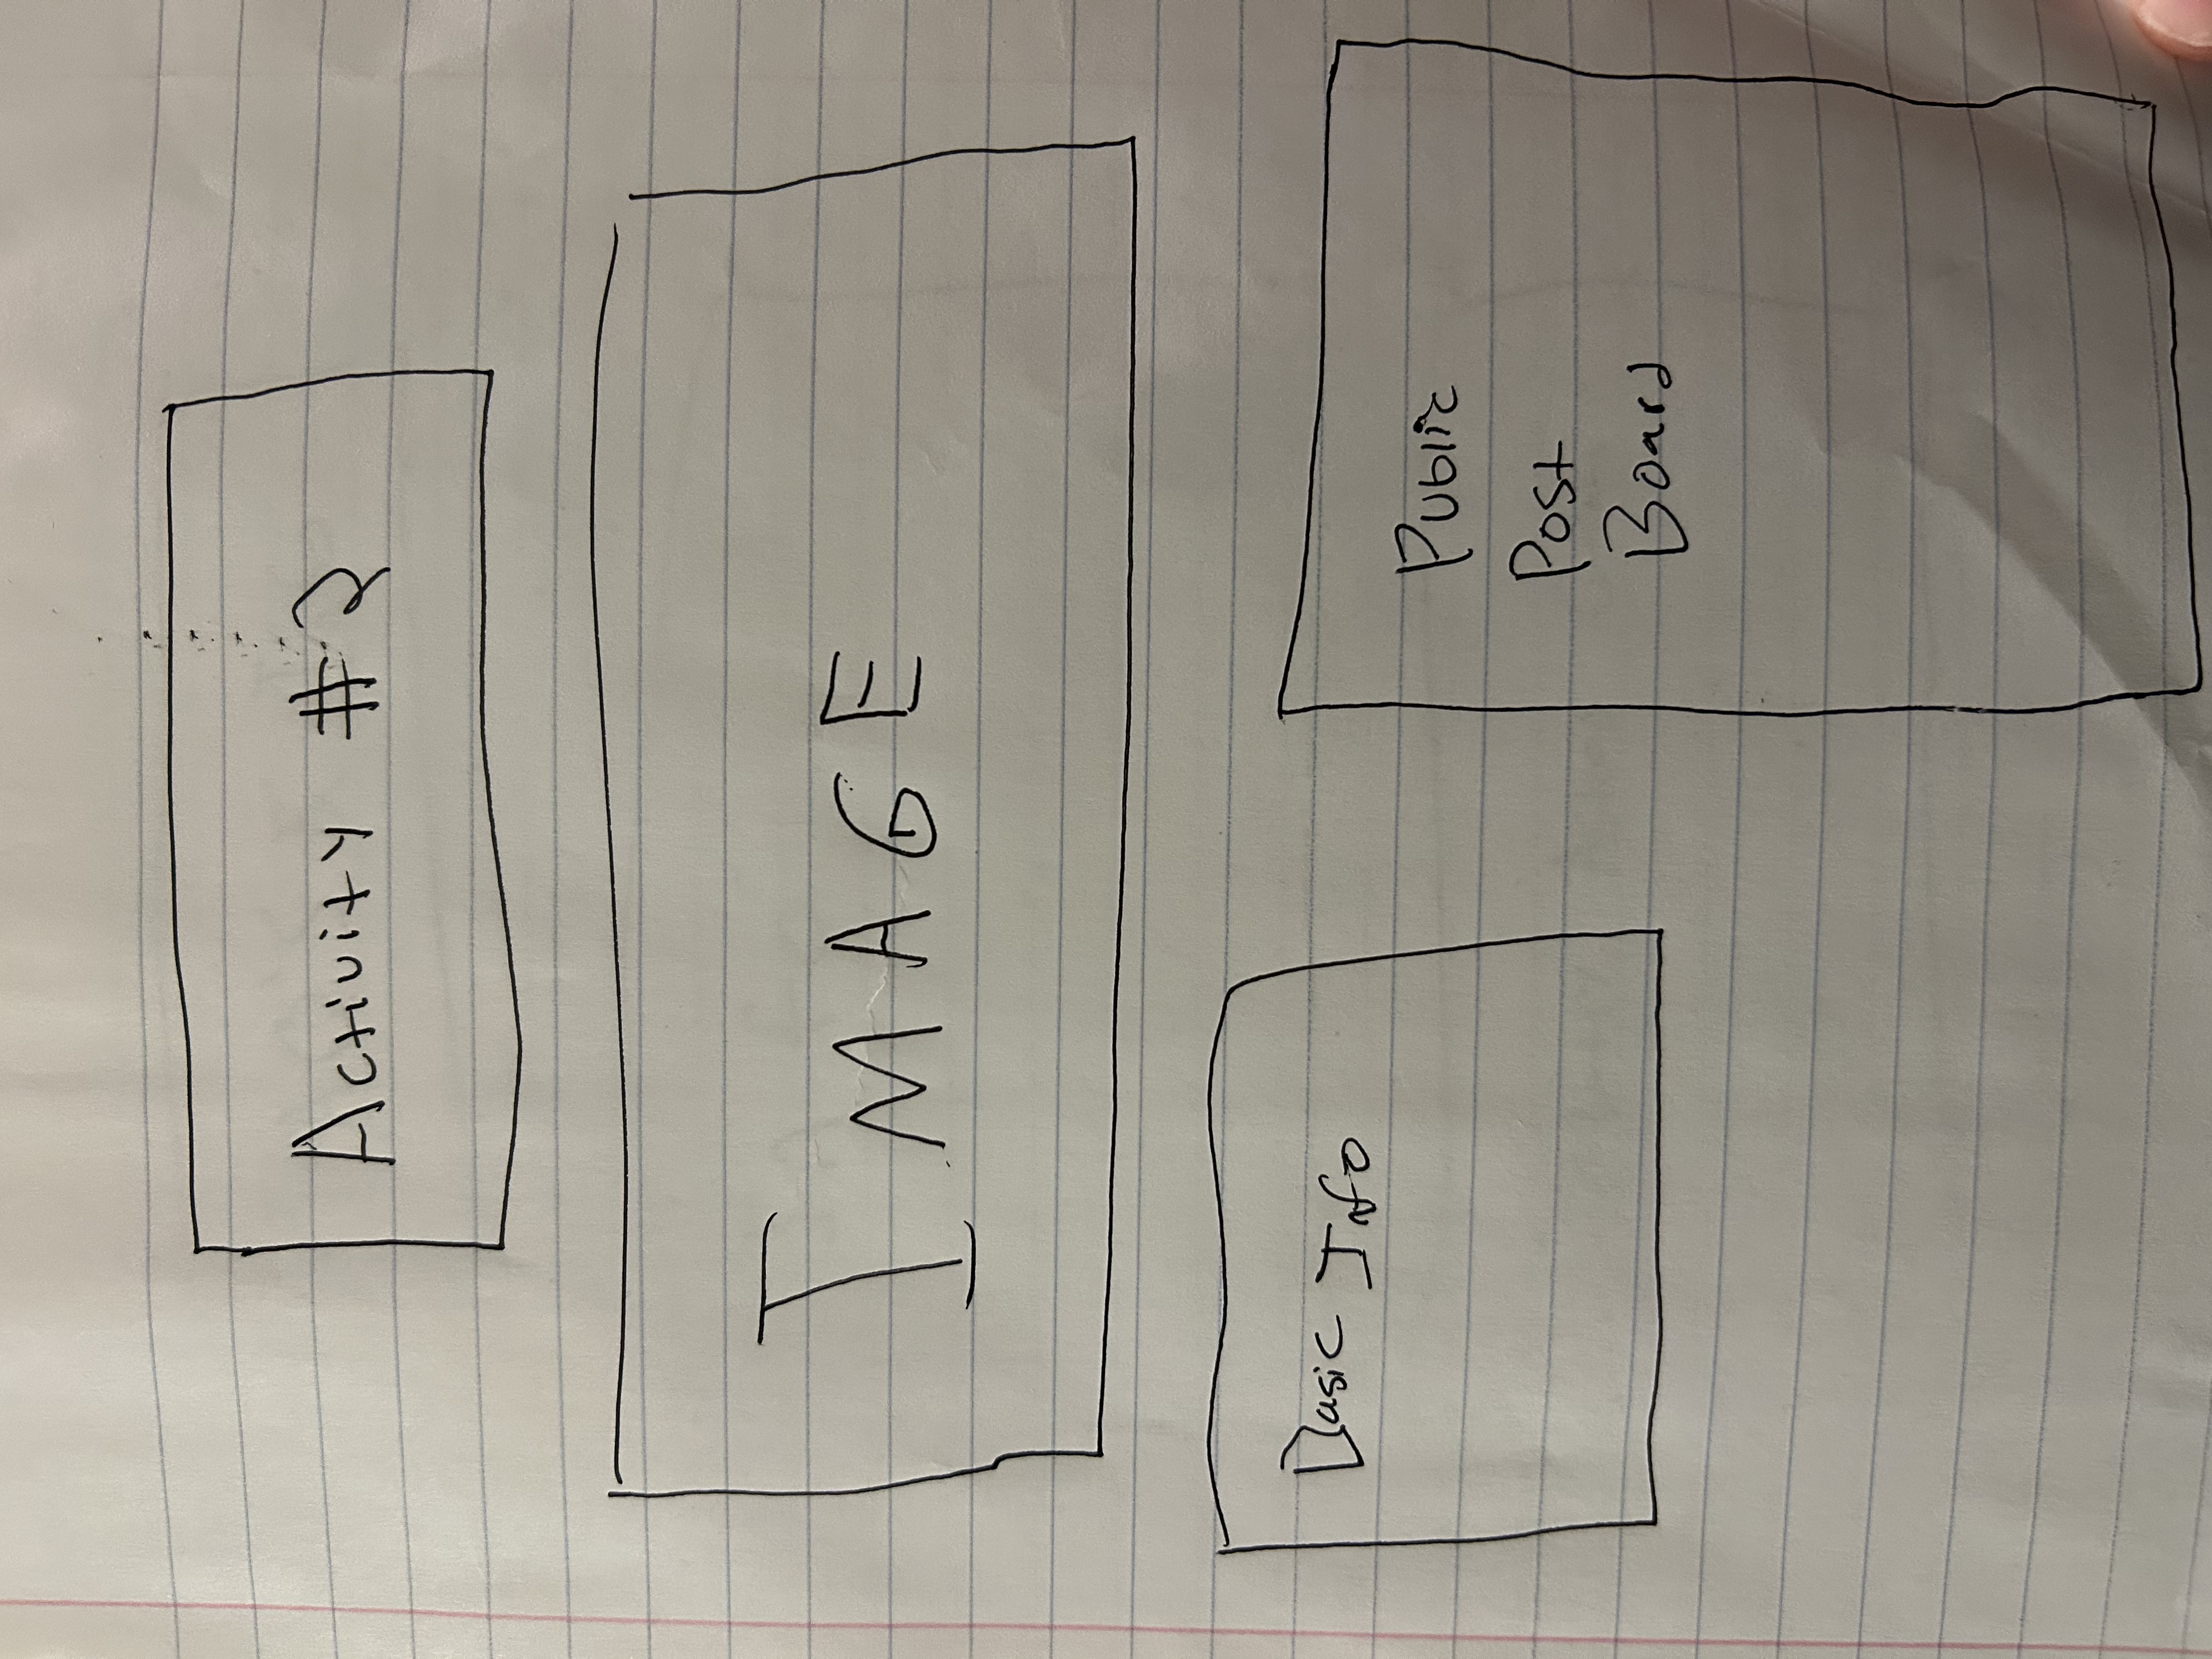 Activity #2
IMAGE
Basic Info
Public
Post
Board